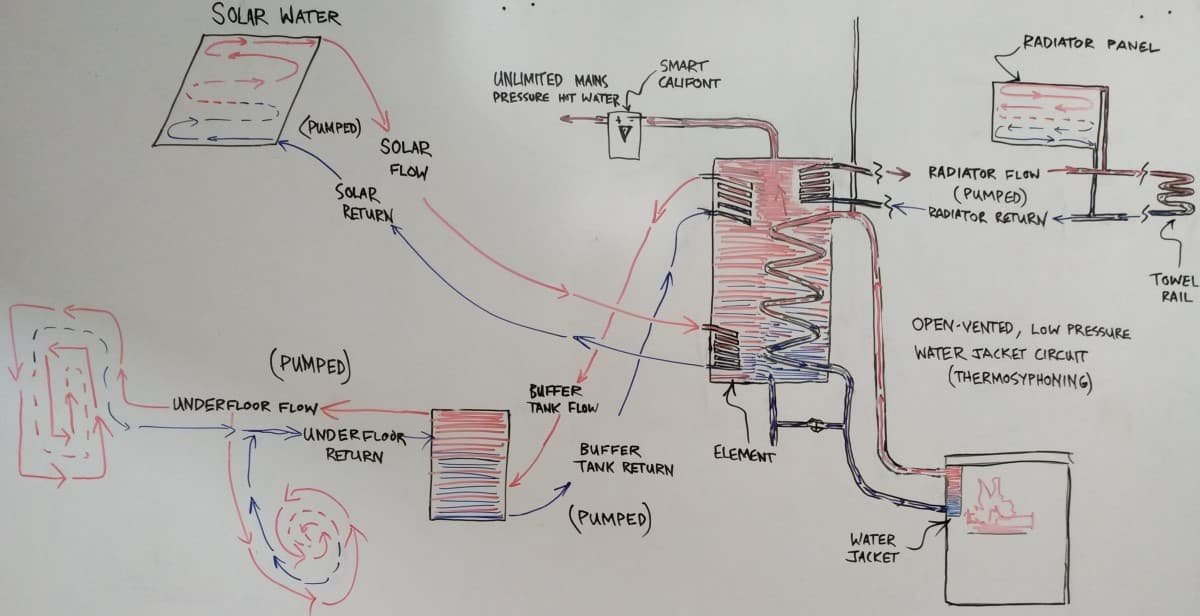 SOLAR WATER
(PUMPED)
SOLAR
FLOW
SOLAR
RETURN
UNLIMITED MAINS
PRESSURE HOT WATER
SMART
CALIFONT
RADIATOR PANEL
RADIATOR FLOW
(PUMPED)
RADIATOR RETURN
TOWEL
RAIL
OPEN-VENTED, LOW PRESSURE
WATER JACKET CIRCUIT
(THERMOSYPHONING)
(PUMPED)
UNDERFLOOR FLOW
UNDERFLOOR
RETURN
BUFFER
TANK FLOW
BUFFER
TANK RETURN
(PUMPED)
ELEMENT
WATER
JACKET